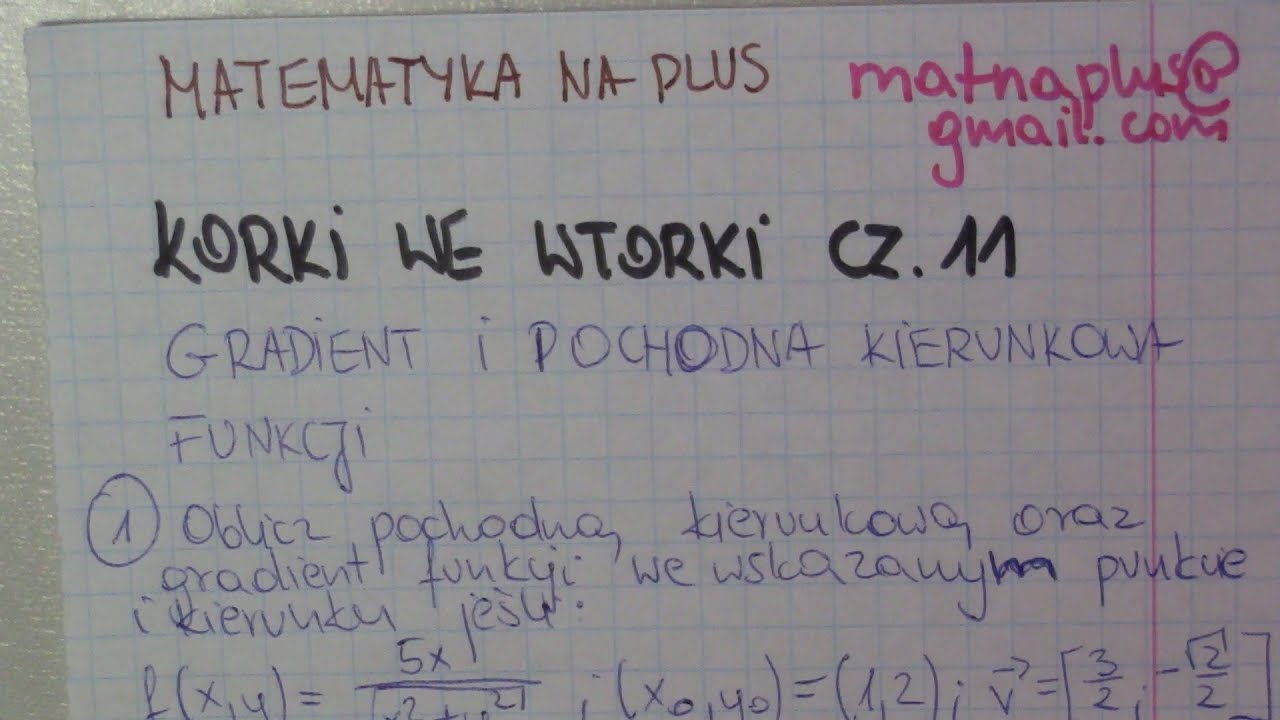 MATEMATYKA NA PLUS
matnaplus@
gmail.com
KORKI WE WTORKI CZ. 11
GRADIENT I POCHODNA KIERUNKOWA
FUNKCJI
① Oblicz pochodną kierunkową oraz
gradient funkcji we wskazanym punkcie
i kierunku jeśli:
f(x,y) = 5x / √(x²+y²) ; (x₀,y₀) = (1,2) ; v⃗ = [3/2, -√2/2]